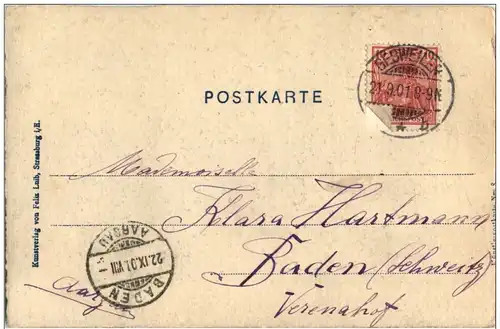 GEBWEILER
21.9.01.8-9N.
* b
POSTKARTE
Kunstverlag von Felix Luib, Strassburg i/E.
Mademoiselle
Klara Hartmann
Baden (Schweiz)
Verenahof
AARGAU
22.IX.01.VIII
BADEN